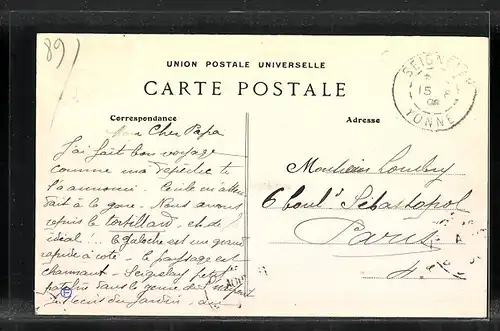 89
UNION POSTALE UNIVERSELLE
CARTE POSTALE
SEIGNELAY
15
YONNE
Correspondance
Adresse
Mon Cher Papa
J'ai fait bon voyage
comme ma dépêche te
l'a annoncé. Cécile m'atten
dait à la gare. Nous avons
repris le tortillard, et de
idéal!... le galoche est un grand
rapide à côté - le paysage est
charmant - Seignelay petit
patelin dans le genre de
Monsieur
6 boul^d Sébastopol
Paris
4e